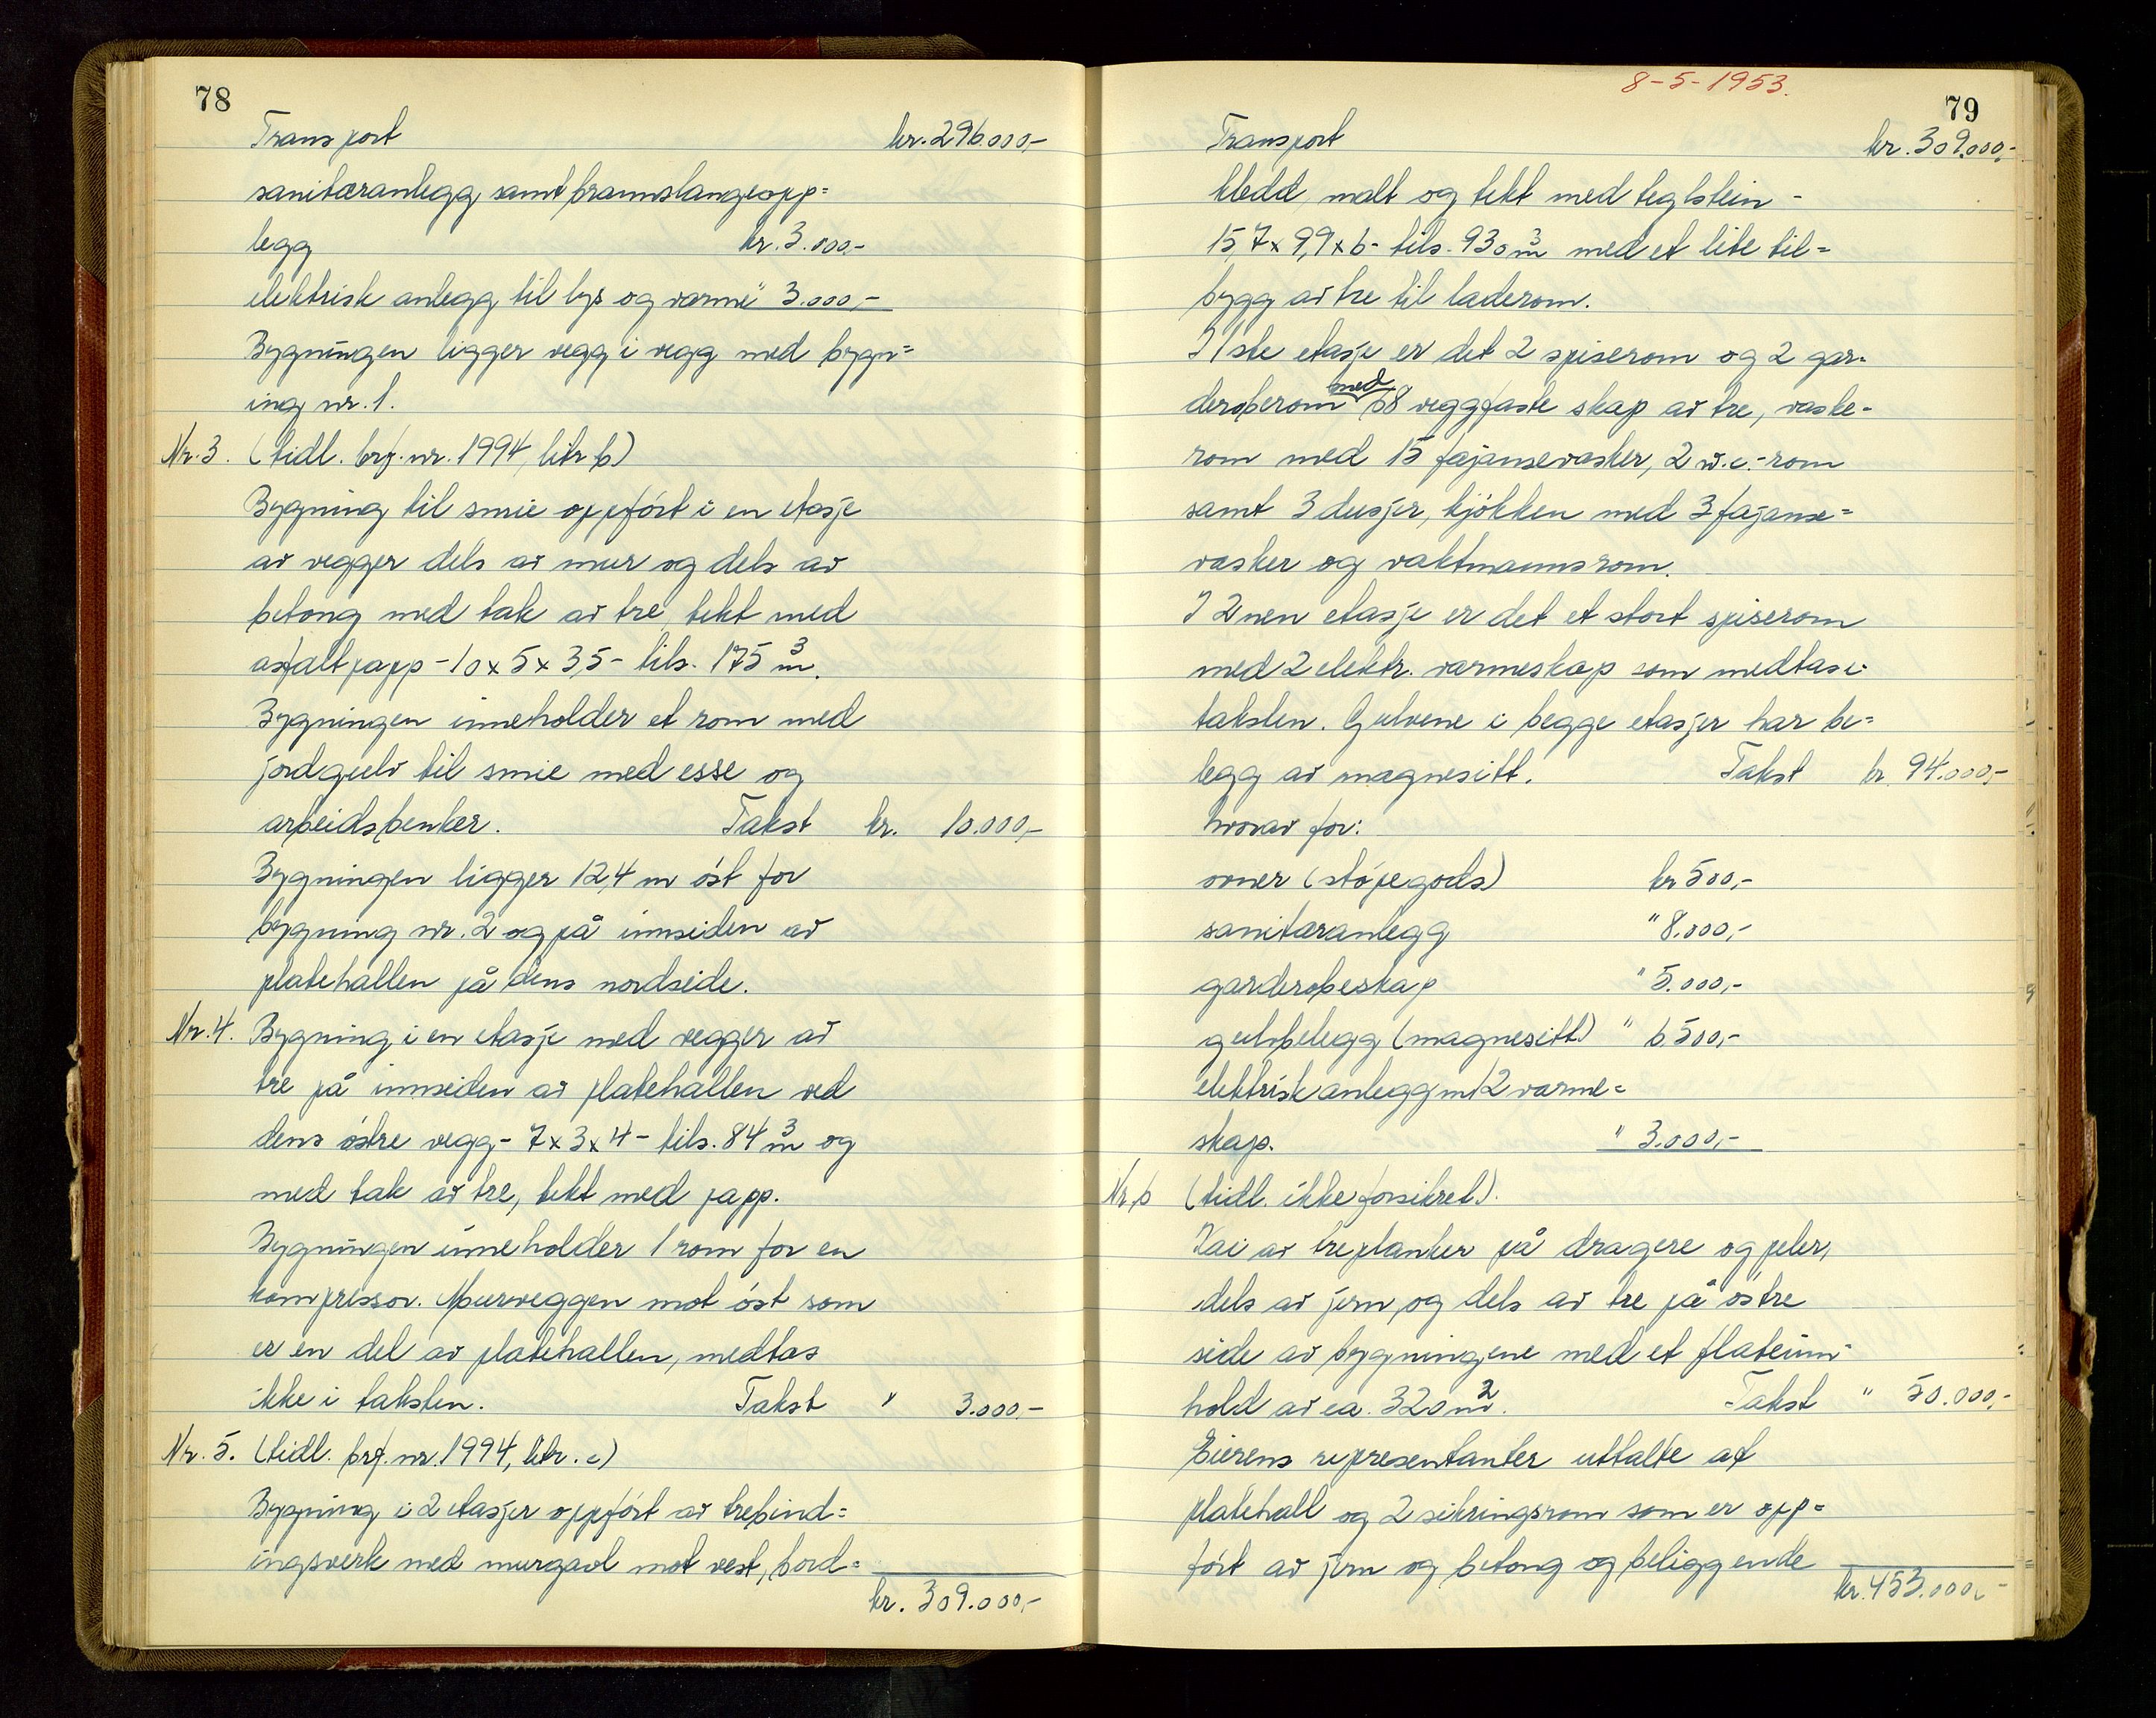 78
Transport kr. 296.000,-
sanitæranlegg samt brannslangeopp=
legg kr. 3.000,-
elektrisk anlegg til lys og varme " 3.000,-
Bygningen ligger vegg i vegg med bygn=
ing nr. 1.
Nr. 3. (tidl. brf. nr. 1994, litr b)
Bygning til smie oppført i en etasje
av vegger dels av mur og dels av
betong med tak av tre, tekt med
asfaltpapp - 10 x 5 x 3,5 - tils. 175 m³.
Bygningen inneholder et rom med
jordgulv til smie med esse og
arbeidsbenker. Takst kr. 10.000,-
Bygningen ligger 12,4 m øst for
bygning nr. 2 og på innsiden av
platehallen på dens nordside.
Nr. 4. Bygning i en etasje med vegger av
tre på innsiden av platehallen ved
dens østre vegg - 7 x 3 x 4 - tils. 84 m³ og
med tak av tre, tekt med papp.
Bygningen inneholder 1 rom for en
kompressor. Murveggen mot øst som
er en del av platehallen, medtas
ikke i taksten. Takst " 3.000,-
Nr. 5. (tidl. brf. nr. 1994, litr. c)
Bygning i 2 etasjer oppført av trebind=
ingsverk med murgavl mot vest, bord=
kr. 309.000,-
8-5-1953.
79
Transport kr. 309.000,-
kledd, malt og tekt med teglstein -
15,7 x 9,9 x 6 - tils. 930 m³ med et lite til=
bygg av tre til laderom.
I 1ste etasje er det 2 spiserom og 2 gar-
deroberom med 68 veggfaste skap av tre, vaske-
rom med 15 fajansevasker, 2 w.c.-rom
samt 3 dusjer, kjøkken med 3 fajanse=
vasker og vaktmannsrom.
I 2nen etasje er det et stort spiserom
med 2 elektr. varmeskap som medtas i
taksten. Gulvene i begge etasjer har be=
legg av magnesitt. Takst kr. 94.000,-
hvorav for:
ovner (støpegods) kr 500,-
sanitæranlegg " 8.000,-
garderobeskap " 5.000,-
gulvbelegg (magnesitt) " 6.500,-
elektrisk anlegg m/2 varme=
skap. " 3.000,-
Nr. 6 (tidl. ikke forsikret).
Kai av treplanker på dragere og peler,
dels av jern og dels av tre på østre
side av bygningene med et flateinn-
hold av ca. 320 m². Takst " 50.000,-
Eierens representanter uttalte at
platehall og 2 sikringsrom som er opp=
ført av jern og betong og beliggende
kr. 453.000,-